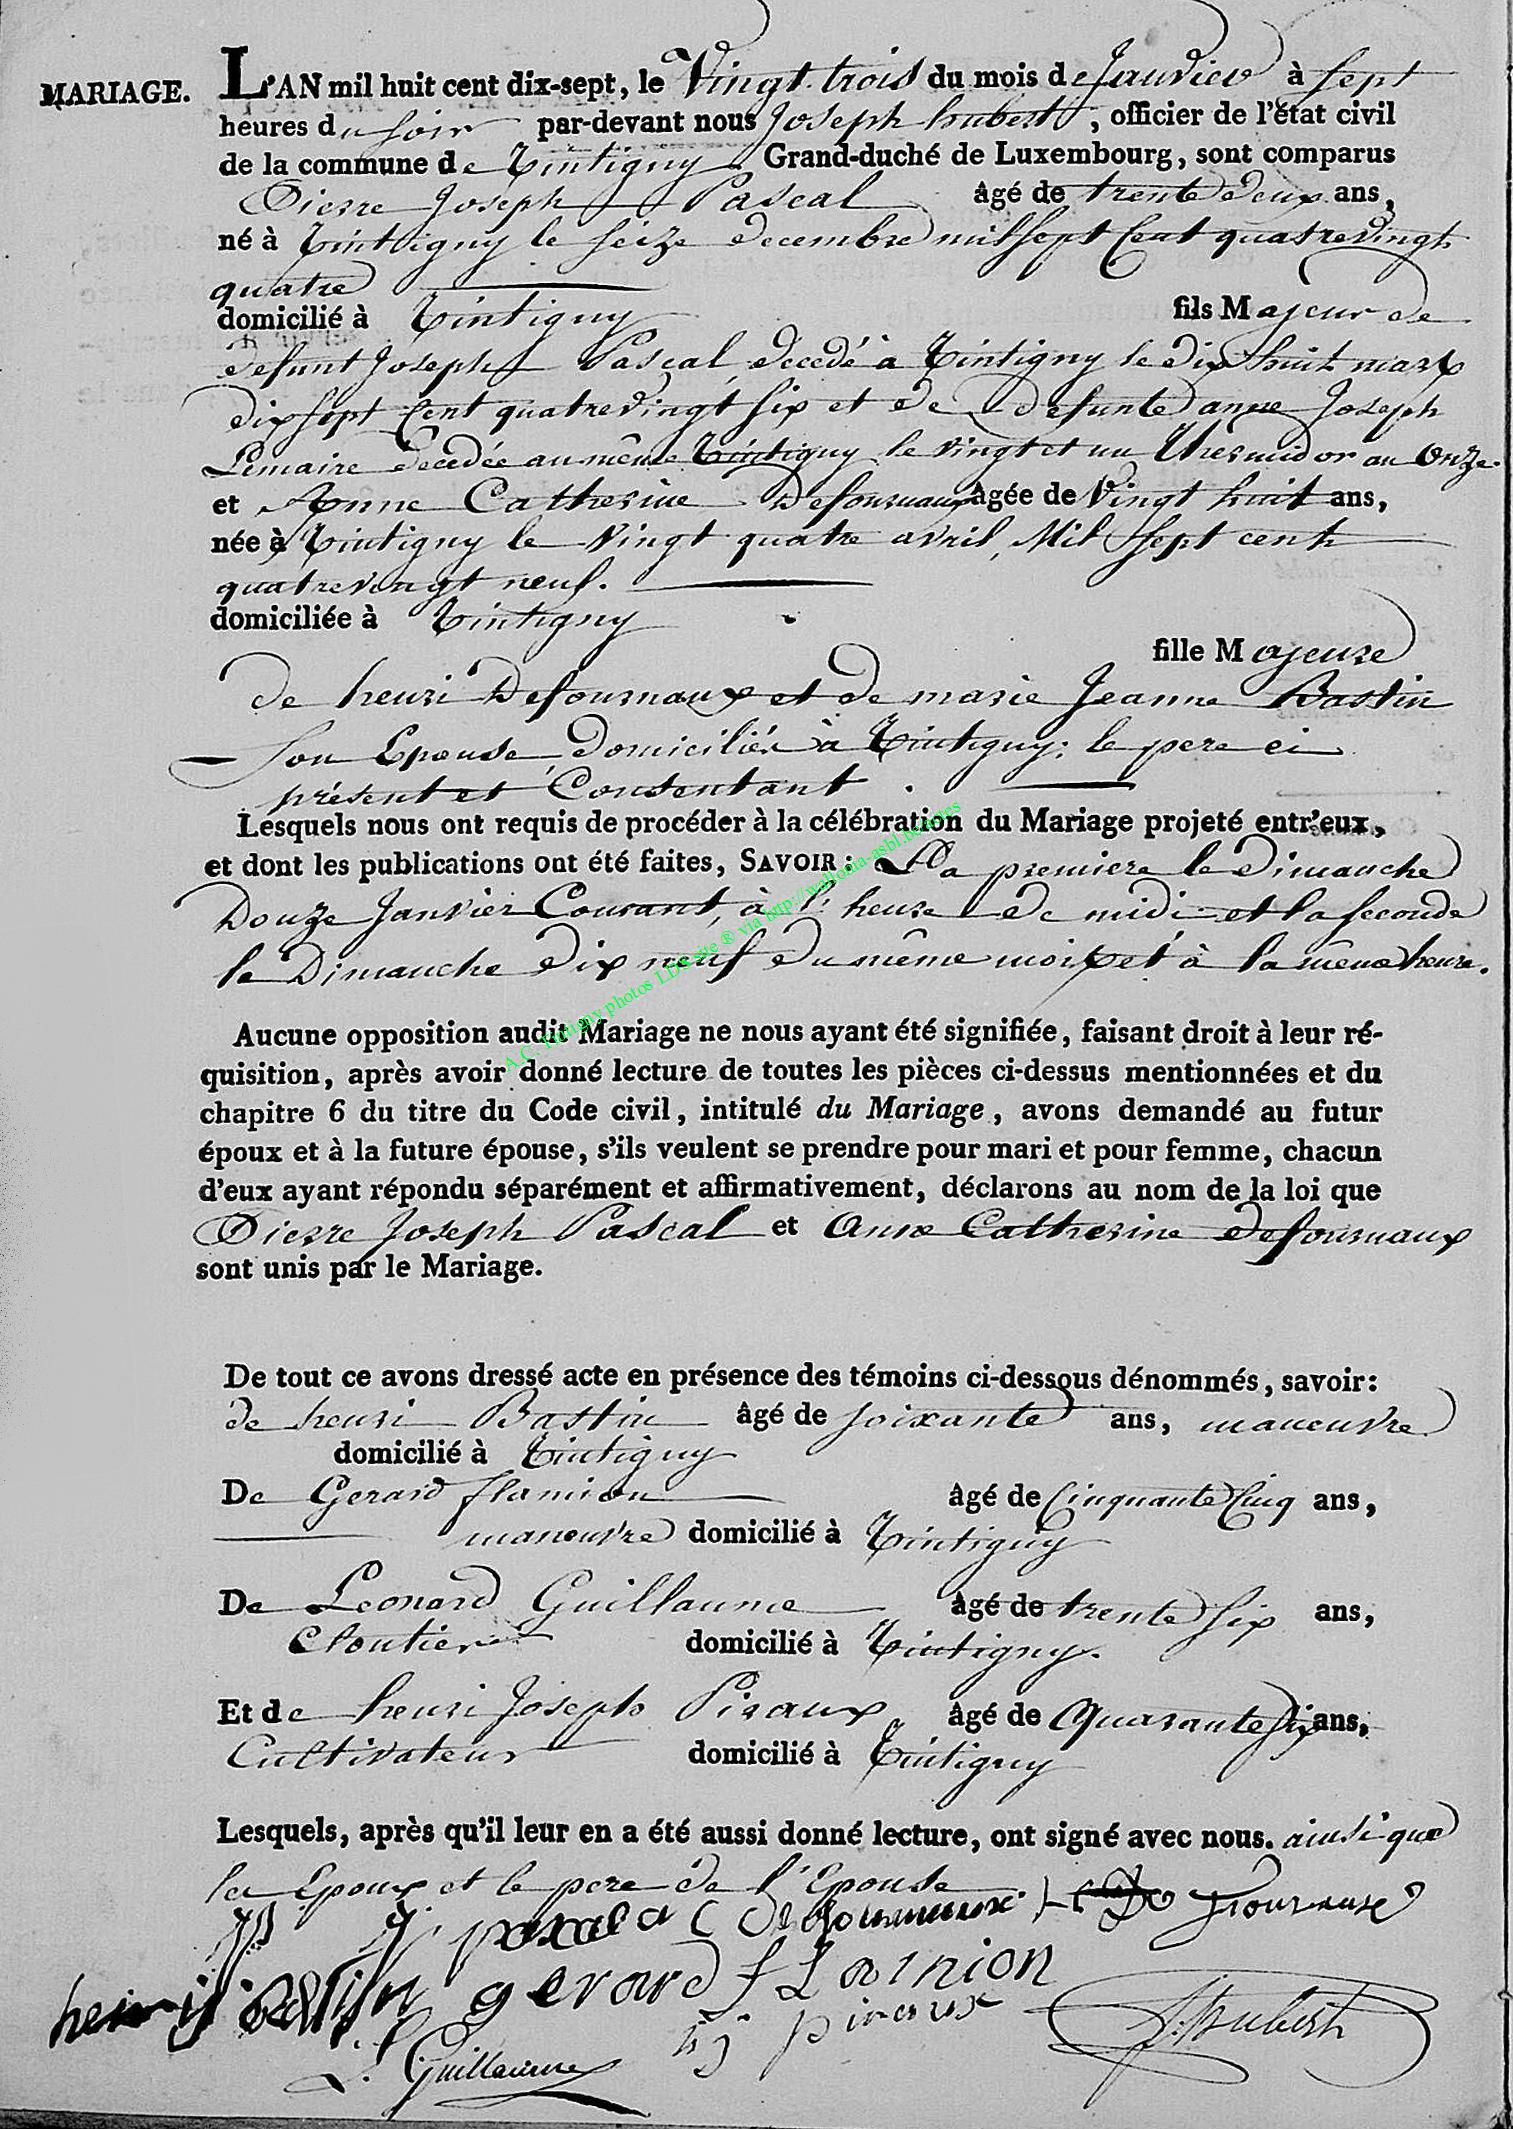 MARIAGE. L'AN mil huit cent dix-sept, le Vingt trois du mois de Janvier à sept
heures du soir par-devant nous Joseph hubert, officier de l'état civil
de la commune de Tintigny Grand-duché de Luxembourg, sont comparus
Pierre Joseph Pascal âgé de trente deux ans,
né à Tintigny le seize decembre mil sept Cent quatrevingt
quatre
domicilié à Tintigny fils Majeur de
defunt Joseph Pascal, decedé à Tintigny le dix huit mars
dix sept Cent quatrevingt six et de defunte anne Joseph
Lemaire decedée au même Tintigny le vingt et un Thermidor an Onze.
et Anne Catherine Defournaux âgée de Vingt huit ans,
née à Tintigny le Vingt quatre avril, Mil Sept cent
quatrevingt neuf.
domiciliée à Tintigny
fille Majeure
de henri Defournaux et de marie Jeanne Bastin
Son Epouse, domiciliés à Tintigny; le pere ci
présent et Consentant.
Lesquels nous ont requis de procéder à la célébration du Mariage projeté entr'eux,
et dont les publications ont été faites, SAVOIR: La premiere le Dimanche
Douze Janvier Courant, à l'heure de midi et la seconde
le Dimanche dix neuf du même mois et à la même heure.
A.C. Tintigny photos LDS site ® via http://wallonia-asbl.be/actes
Aucune opposition audit Mariage ne nous ayant été signifiée, faisant droit à leur ré-
quisition, après avoir donné lecture de toutes les pièces ci-dessus mentionnées et du
chapitre 6 du titre du Code civil, intitulé du Mariage, avons demandé au futur
époux et à la future épouse, s'ils veulent se prendre pour mari et pour femme, chacun
d'eux ayant répondu séparément et affirmativement, déclarons au nom de la loi que
Pierre Joseph Pascal et Anne Catherine defournaux
sont unis par le Mariage.
De tout ce avons dressé acte en présence des témoins ci-dessous dénommés, savoir:
de henri Bastin âgé de soixante ans, maneuvre
domicilié à Tintigny
De Gerard flamion âgé de Cinquante Cinq ans,
maneuvre domicilié à Tintigny
De Leonard Guillaume âgé de trente six ans,
Cloutier domicilié à Tintigny.
Et de henri Joseph Piraux âgé de Quarante six ans,
Cultivateur domicilié à Tintigny
Lesquels, après qu'il leur en a été aussi donné lecture, ont signé avec nous. ainsi que
les Epoux et le pere de l'Epouse
pascal a C defournaux
henry bastin gerard flamion
hj piraux J. hubert
L. Guillaume